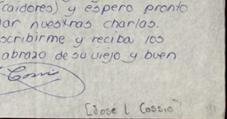 caidores) y espero pronto
dar nuestras charlas.
scribirme y reciba los
abrazo de su viejo y buen
[José L Cossío]